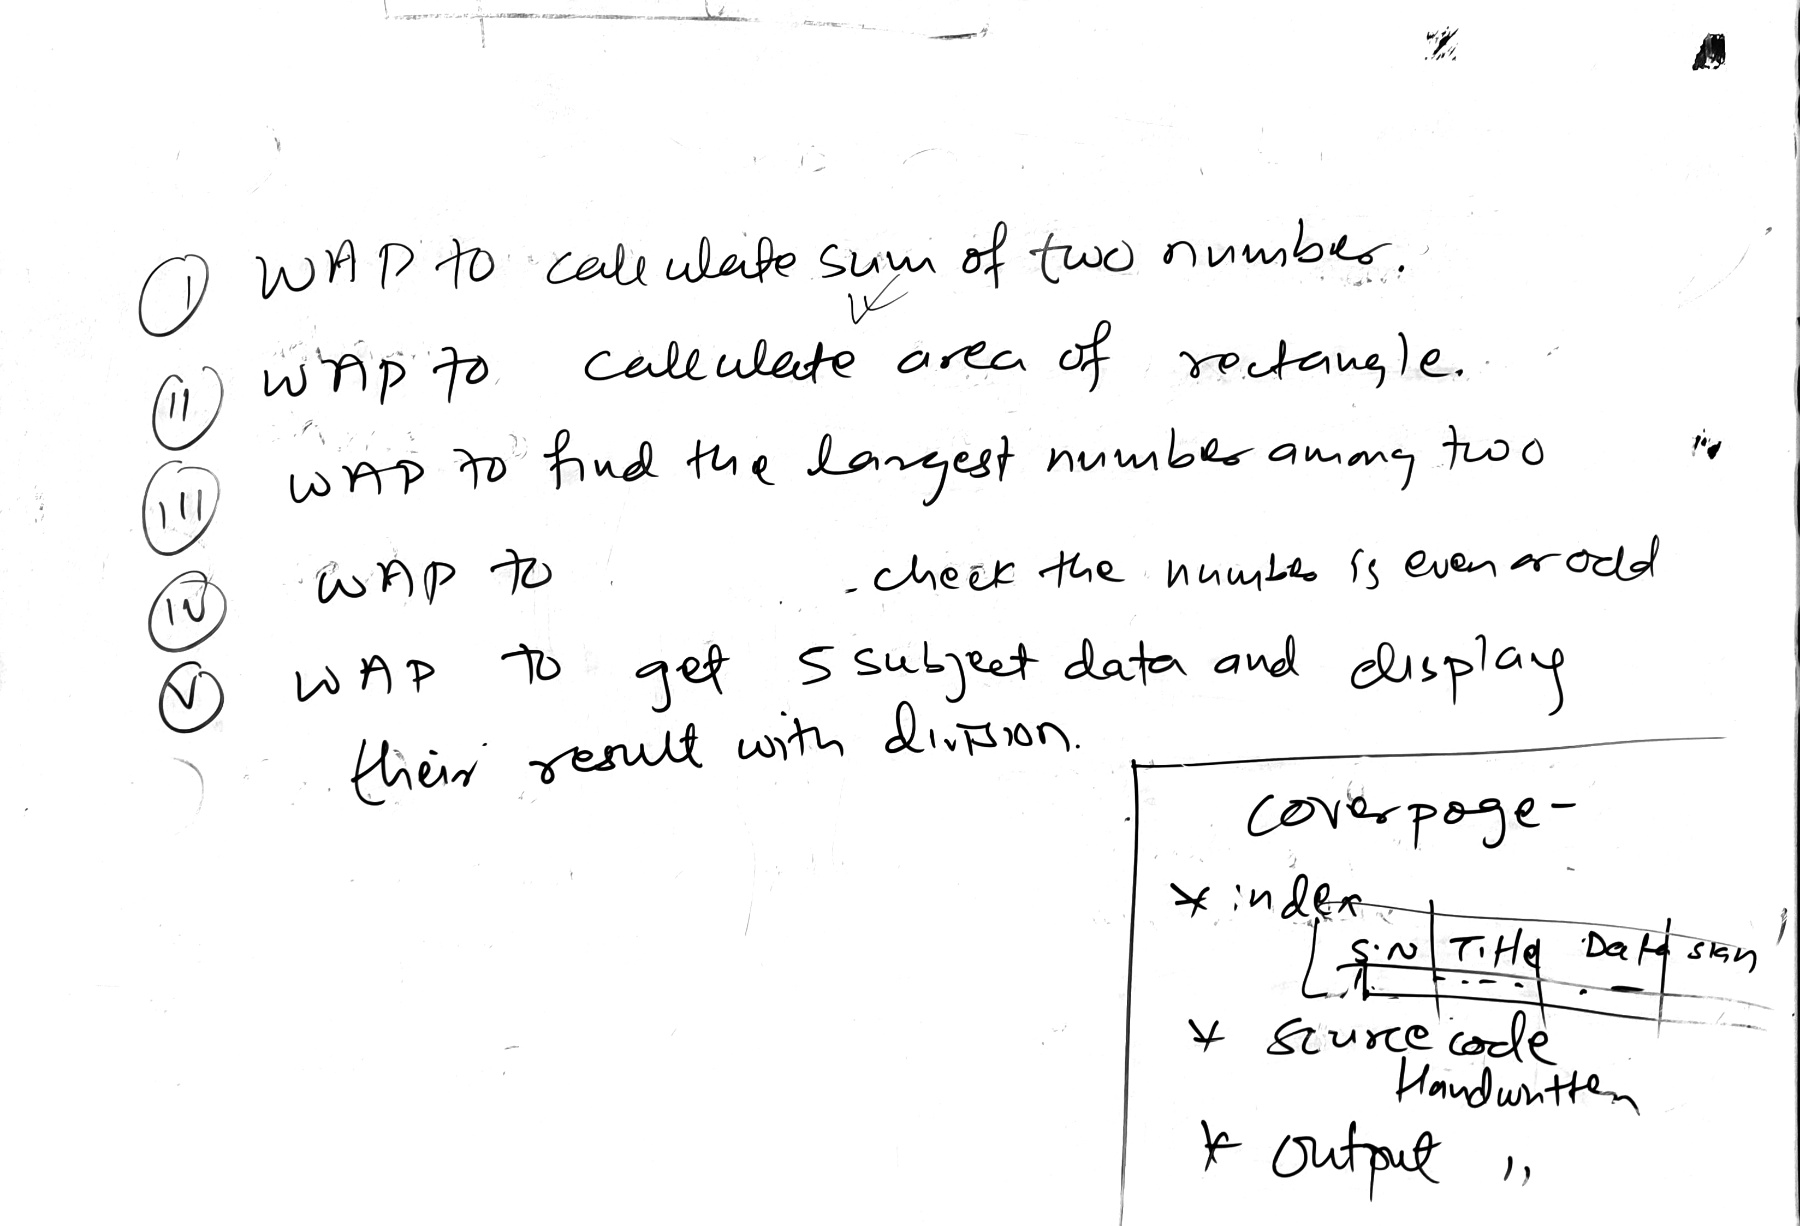 (I) WAP to calculate sum of two number.
(II) WAP to calculate area of rectangle.
(III) WAP to find the largest number among two
(IV) WAP to check the number is even or odd
(V) WAP to get 5 subject data and display
their result with division.
Coverpage -
* index
S.N Title Date sign
1. .--. . -
* Source code
Handwritten
* Output ,,